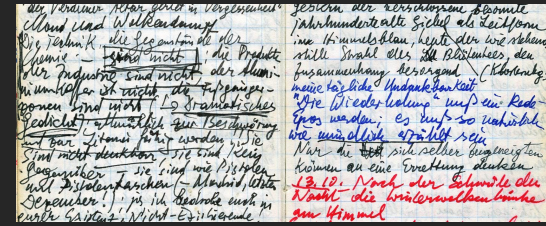 der Verdiner Altar gerät in Vergessenheit
Mond und Wolkendampf
Die Technik, die Gegenstände der
Chemie – sind nicht, die Produkte
der Industrie sind nicht, der Alumi-
niumkoffer ist nicht, die Fußgänger-
zonen sind nicht (→ Dramatisches
Gedicht), allmählich zur Beschwörung
und zur Litanei fähig werden: "Sie
sind nicht denkbar", sie sind kein
Gegenüber – sie sind wie Pistolen
und Pistolentaschen (– Madrid, letzten
Dezember:) ja ich bedrohe euch in
eurer Existenz, Nicht-Existierende!
gestern der zerschossene besonnte
jahrhundertealte Giebel als Leitform
im Himmelsblau, heute der wie schon
stille Strahl des Blütentees, den
Zusammenhang besorgend (Klosterbg.
meine tägliche Undankbarkeit
"Die Wiederholung" muß ein Rede-
Epos werden; es muß so natürlich
wie mündlich erzählt sein
Nur die sich selber
können an eine Errettung denken
13.10. Nach der Schwüle der
Nacht die
am Himmel